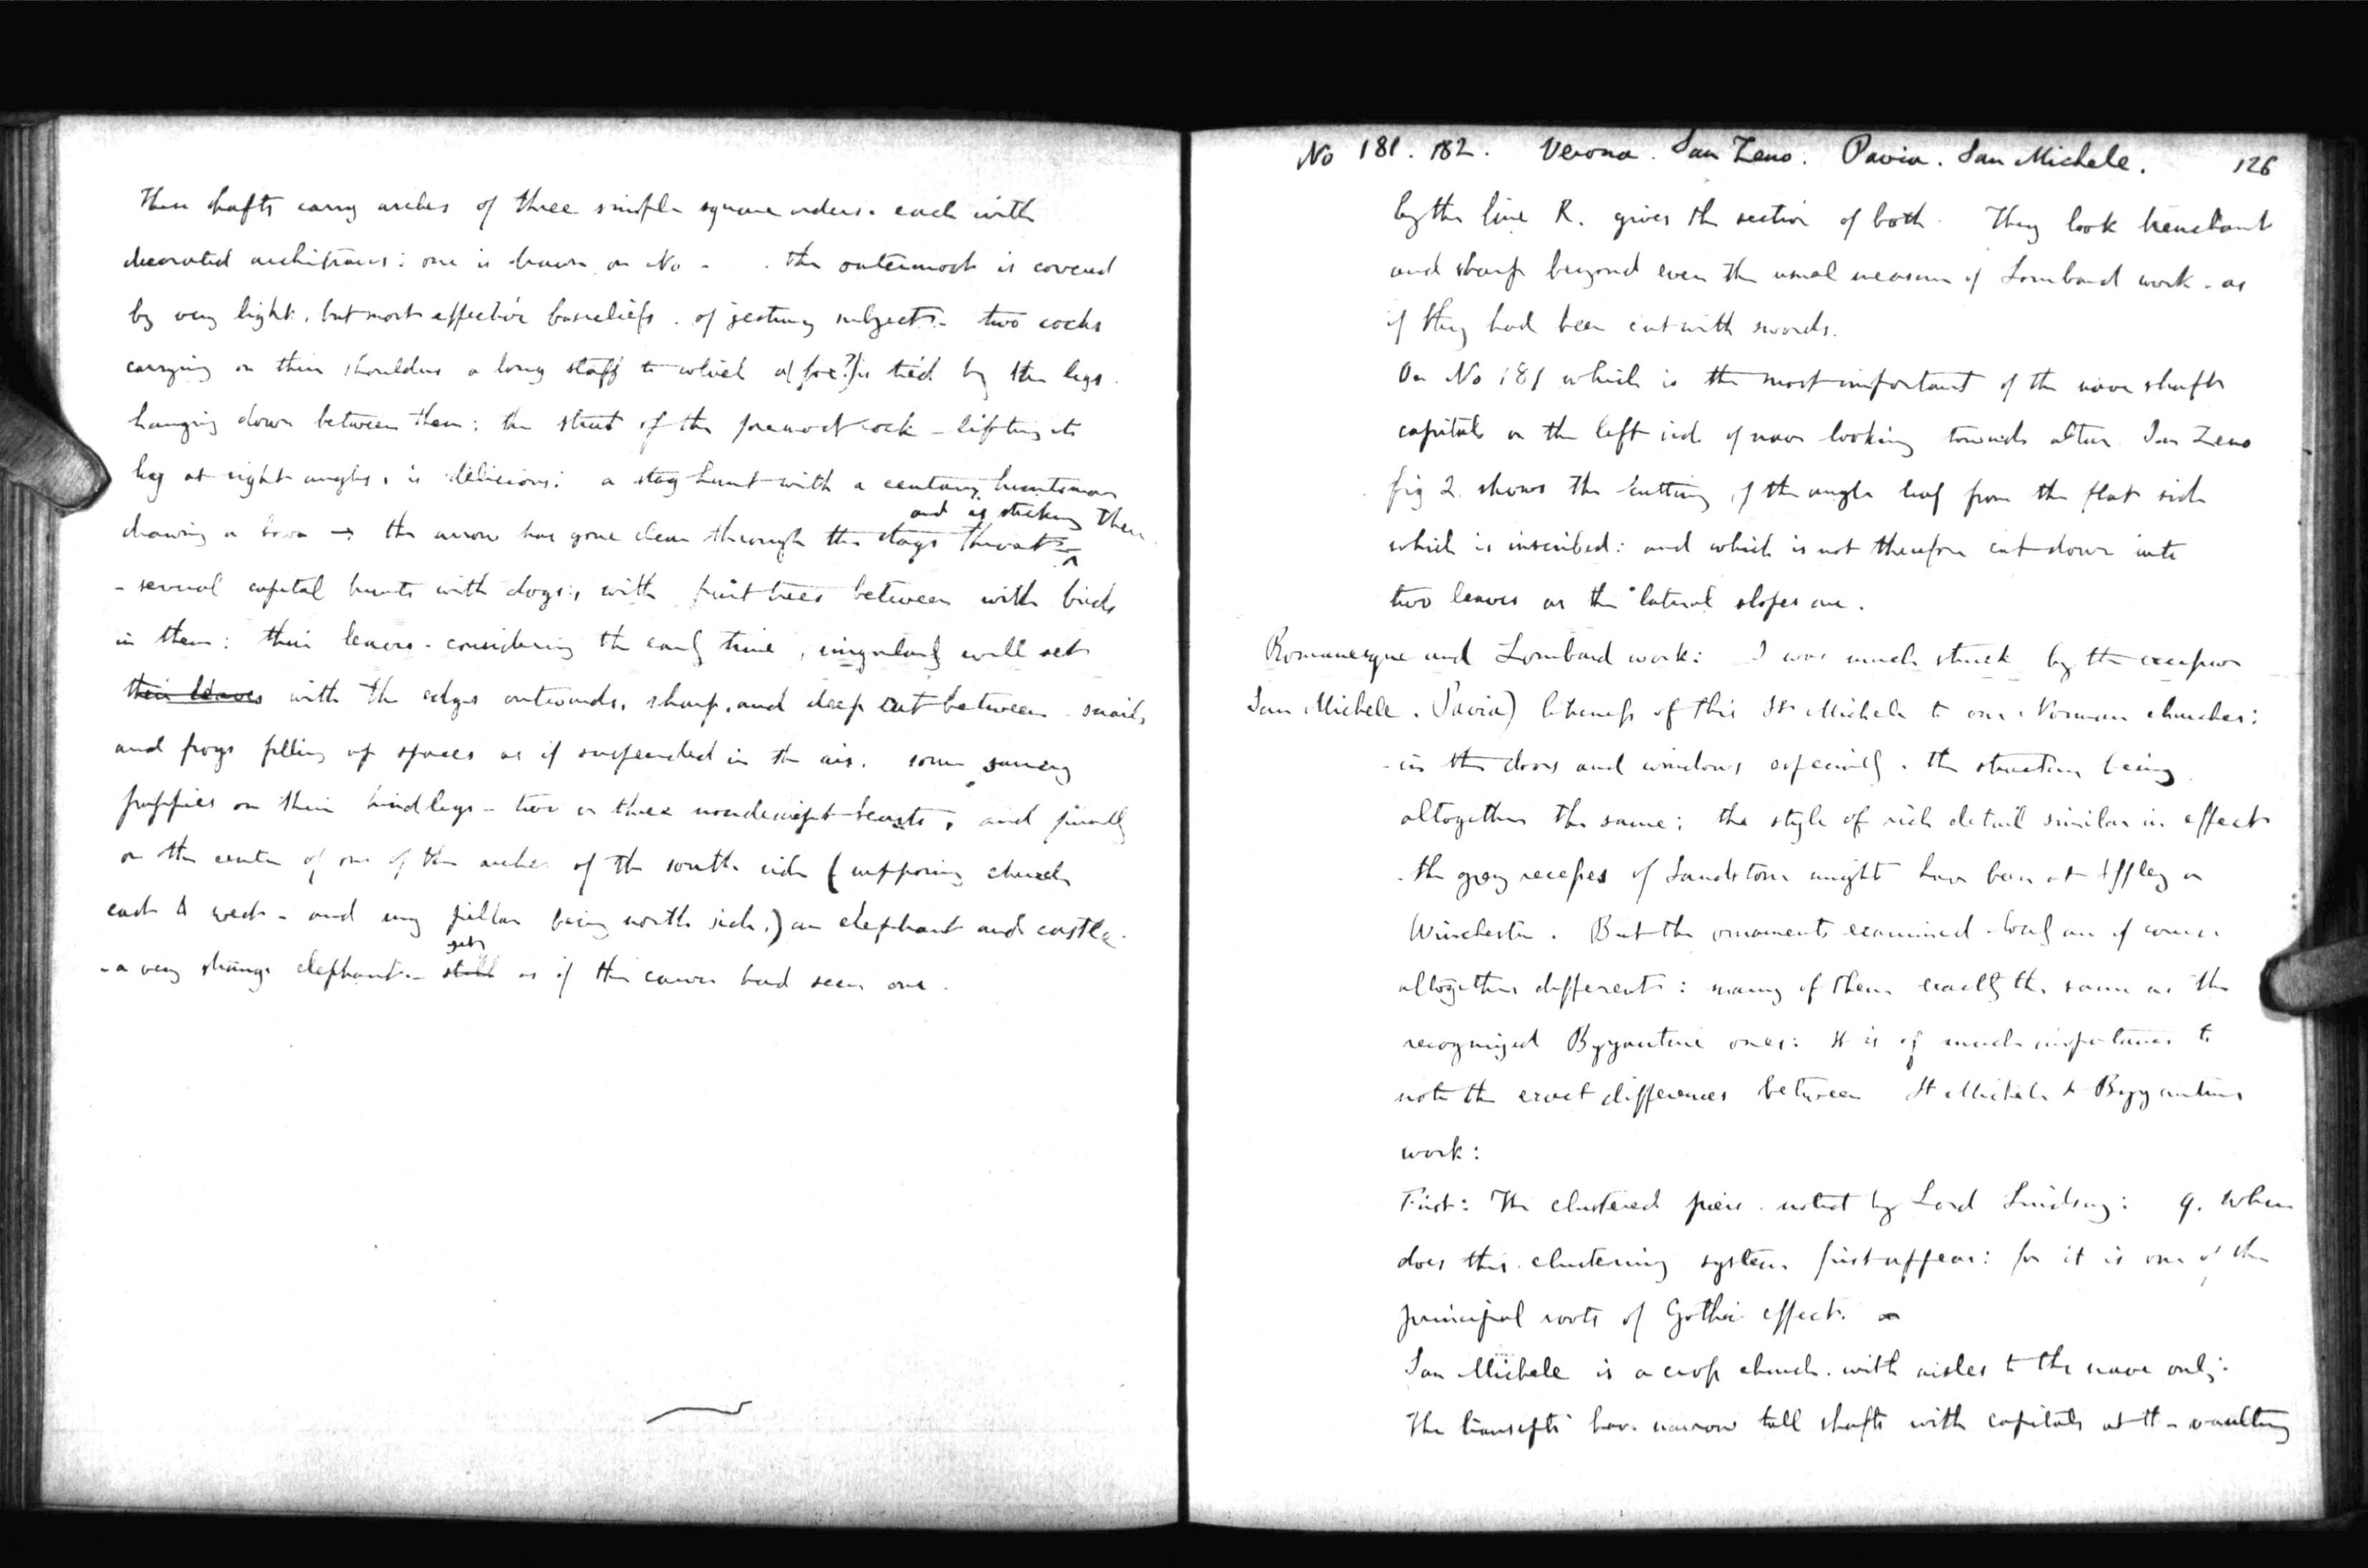 These shafts carry arches of three simple square orders. each with
decorated architraves: one is drawn on No - . the outermost is covered
by very light, but most effective basreliefs. of jesting subjects. two cocks
carrying on their shoulders a long staff to which a (fox?) is tied by the legs.
hanging down between them: the strut of the foremost cock - lifting its
leg at right angles, is delicious: a stag hunt with a centaur huntsman
drawing a bow → the arrow has gone clean through the stags throat
and is sticking there.
- several capital hunts with dogs, with fruit trees between with birds
in them: their leaves. considering the early time, singularly well set
their leaves with the edges outwards, sharp, and deep cut between - snails
and frogs filling up spaces as if suspended in the air. some saucy
puppies on their hindlegs - two or three nondescript beasts, and finally
on the centre of one of the arches of the south side (supposing church
east & west - and my pillar being north side,) an elephant and castle.
- a very strange elephant - still yet as if the carver had seen one.
No 181. 182. Verona. San Zeno. Pavia. San Michele. 126
by the line R. gives the section of both. They look trenchant
and sharp beyond even the usual measure of Lombard work. as
if they had been cut with swords.
On No 181 which is the most important of the nave shafts
capitals on the left side of nave looking towards altar San Zeno
fig 2 shows the cutting of the angle leaf from the flat side
which is inscribed: and which is not therefore cut down into
two leaves as the lateral slopes are.
Romanesque and Lombard work: I was much struck by the exceeding
San Michele. Pavia) likeness of this St Michele to our Norman churches:
- in the doors and windows especially. the structure being
altogether the same; the style of rich detail similar in effect
- the grey recesses of Sandstone might have been at Iffley or
Winchester. But the ornaments examined - local are of course
altogether different: many of them exactly the same as the
recognized Byzantine ones: It is of much importance to
note the exact differences between St Michele & Byzantine
work:
First: The clustered piers. noted by Lord Lindsay: q. When
does this clustering system first appear: for it is one of the
principal roots of Gothic effect.
San Michele is a cross church. with aisles to the nave only:
The transepts have narrow tall shafts with capitals at the vaulting